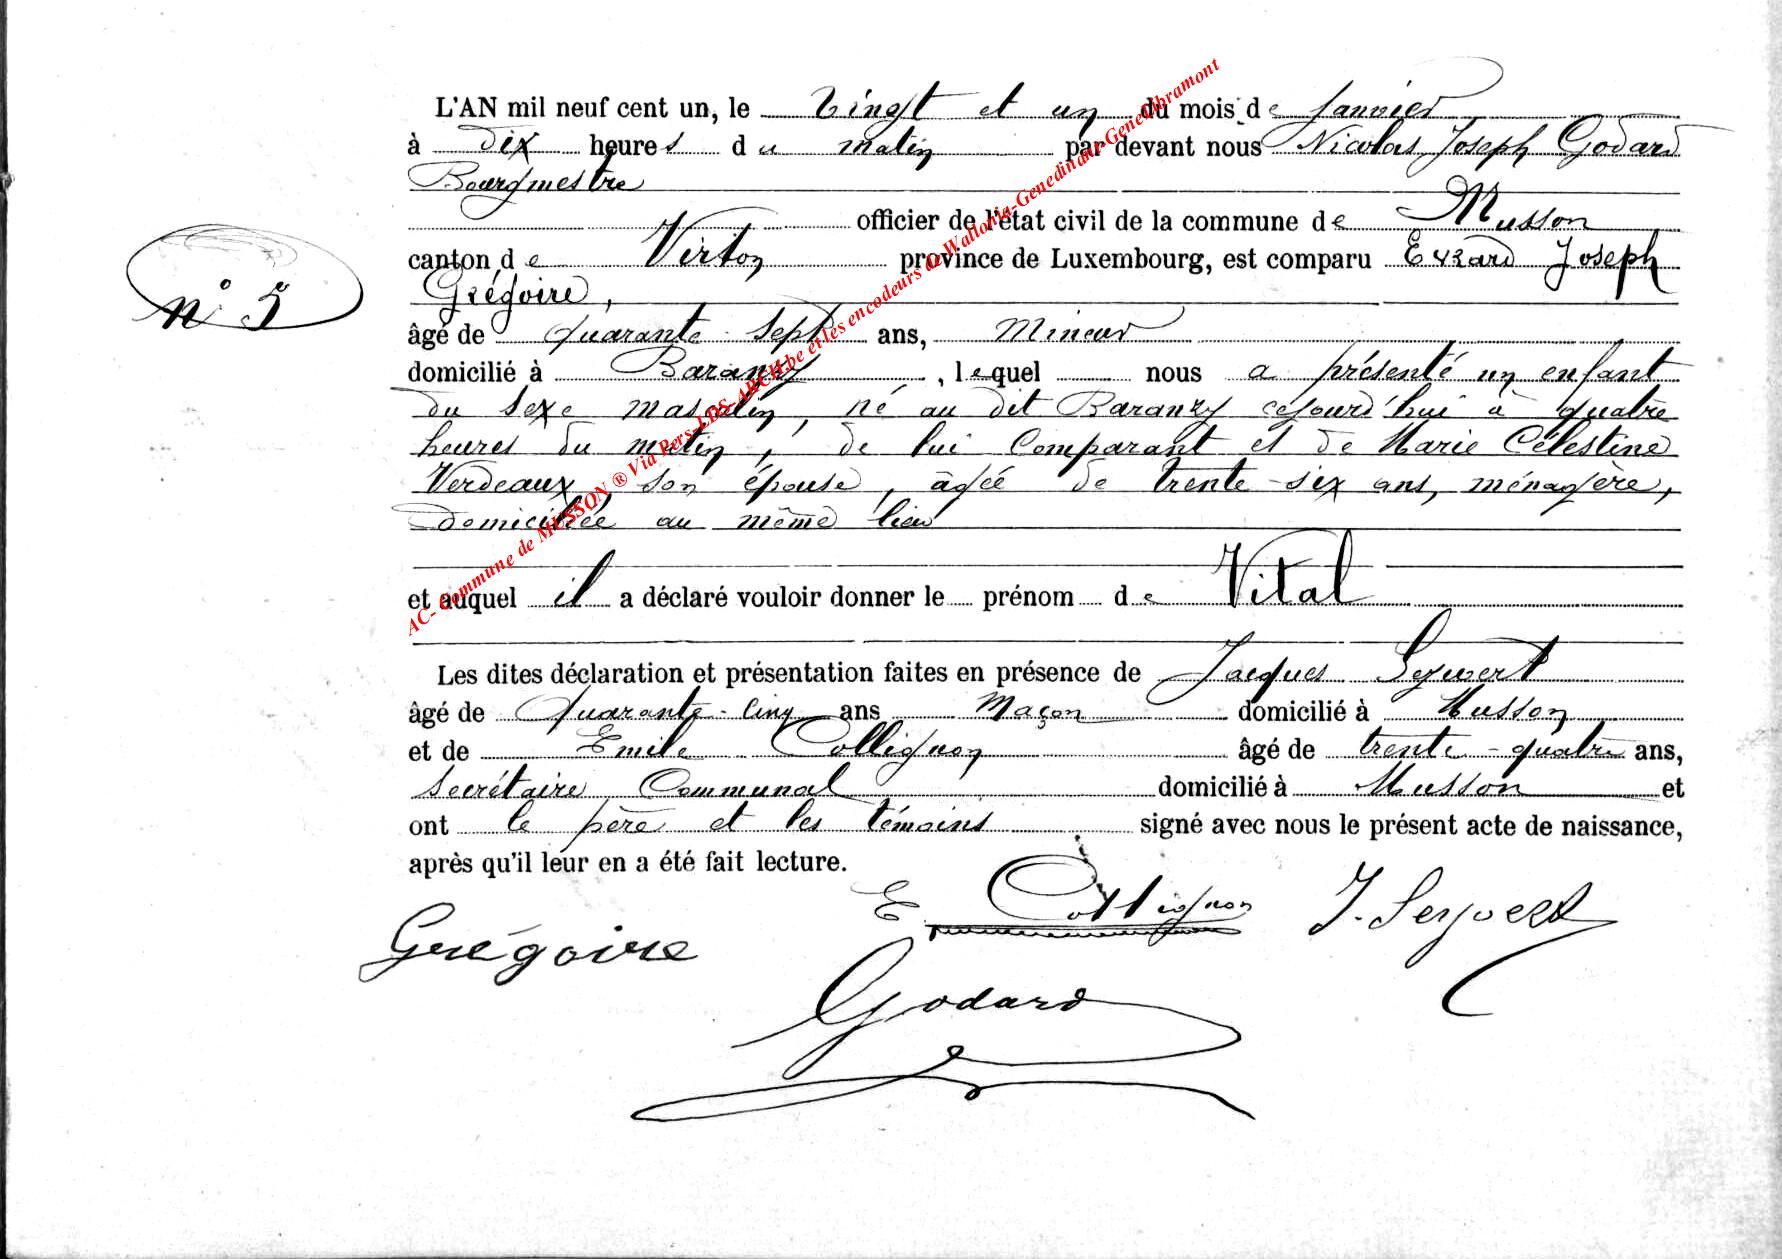 L'AN mil neuf cent un, le vingt et un du mois de Janvier
à dix heures du matin par devant nous Nicolas Joseph Godard
Bourgmestre
officier de l'état civil de la commune de Musson
canton de Virton province de Luxembourg, est comparu Evrard Joseph
Grégoire,
n° 5
âgé de quarante-sept ans, Mineur
domicilié à Baranzy, lequel nous a présenté un enfant
du sexe masculin, né au dit Baranzy cejourd'hui à quatre
heures du matin, de lui Comparant et de Marie Célestine
Verdeaux, son épouse, âgée de trente-six ans, ménagère,
domiciliée au même lieu
et auquel il a déclaré vouloir donner le prénom de Vital
Les dites déclaration et présentation faites en présence de Jacques
âgé de quarante-cinq ans Maçon domicilié à Musson
et de Emile Collignon âgé de trente-quatre ans,
Secrétaire Communal domicilié à Musson et
ont le père et les témoins signé avec nous le présent acte de naissance,
après qu'il leur en a été fait lecture.
E Collignon J.
Grégoire
Godard
AC- Commune de MUSSON ® Via Pers-LDS-ARCH.be et les encodeurs de Wallonia-Genedinant-GeneLibramont